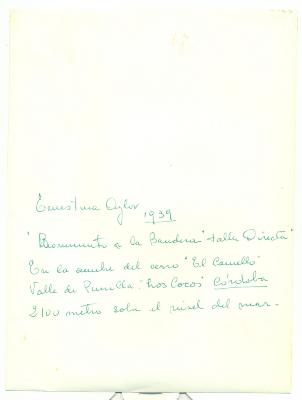 Ernestina Azlor
1939
"Monumento a la Bandera" talla Directa"
En la cumbre del cerro "El Camello"
Valle de Punilla "Los Cocos" Córdoba
2100 metro sobre el nivel del mar.